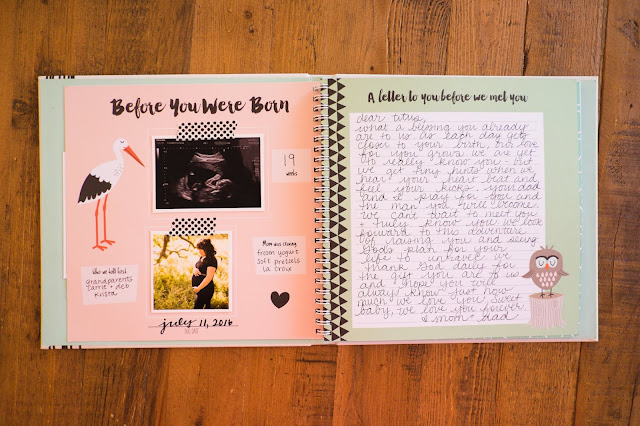 Before You Were Born
19
weeks
Who we told first
grandparents
Carrie + deb
Krista
Mom was craving
frozen yogurt
soft pretzels
la croix
july 11, 2016
DUE DATE
A letter to you before we met you
dear titus,
what a blessing you already
are to us. as each day gets
closer to your birth, our love
for you grows. we are yet
to really know you - but
we get tiny hints when we
hear your heart beat and
feel your kicks. your dad
and I pray for you and
the man you will become.
we can't wait to meet you
+ truly know you. we look
forward to this adventure
of raising you and seeing
God's plan for your
life to unravel. we
thank God daily for
the gift you are to us
and hope you will
always know just how
much we love you. sweet
baby, we love you forever.
mom + dad